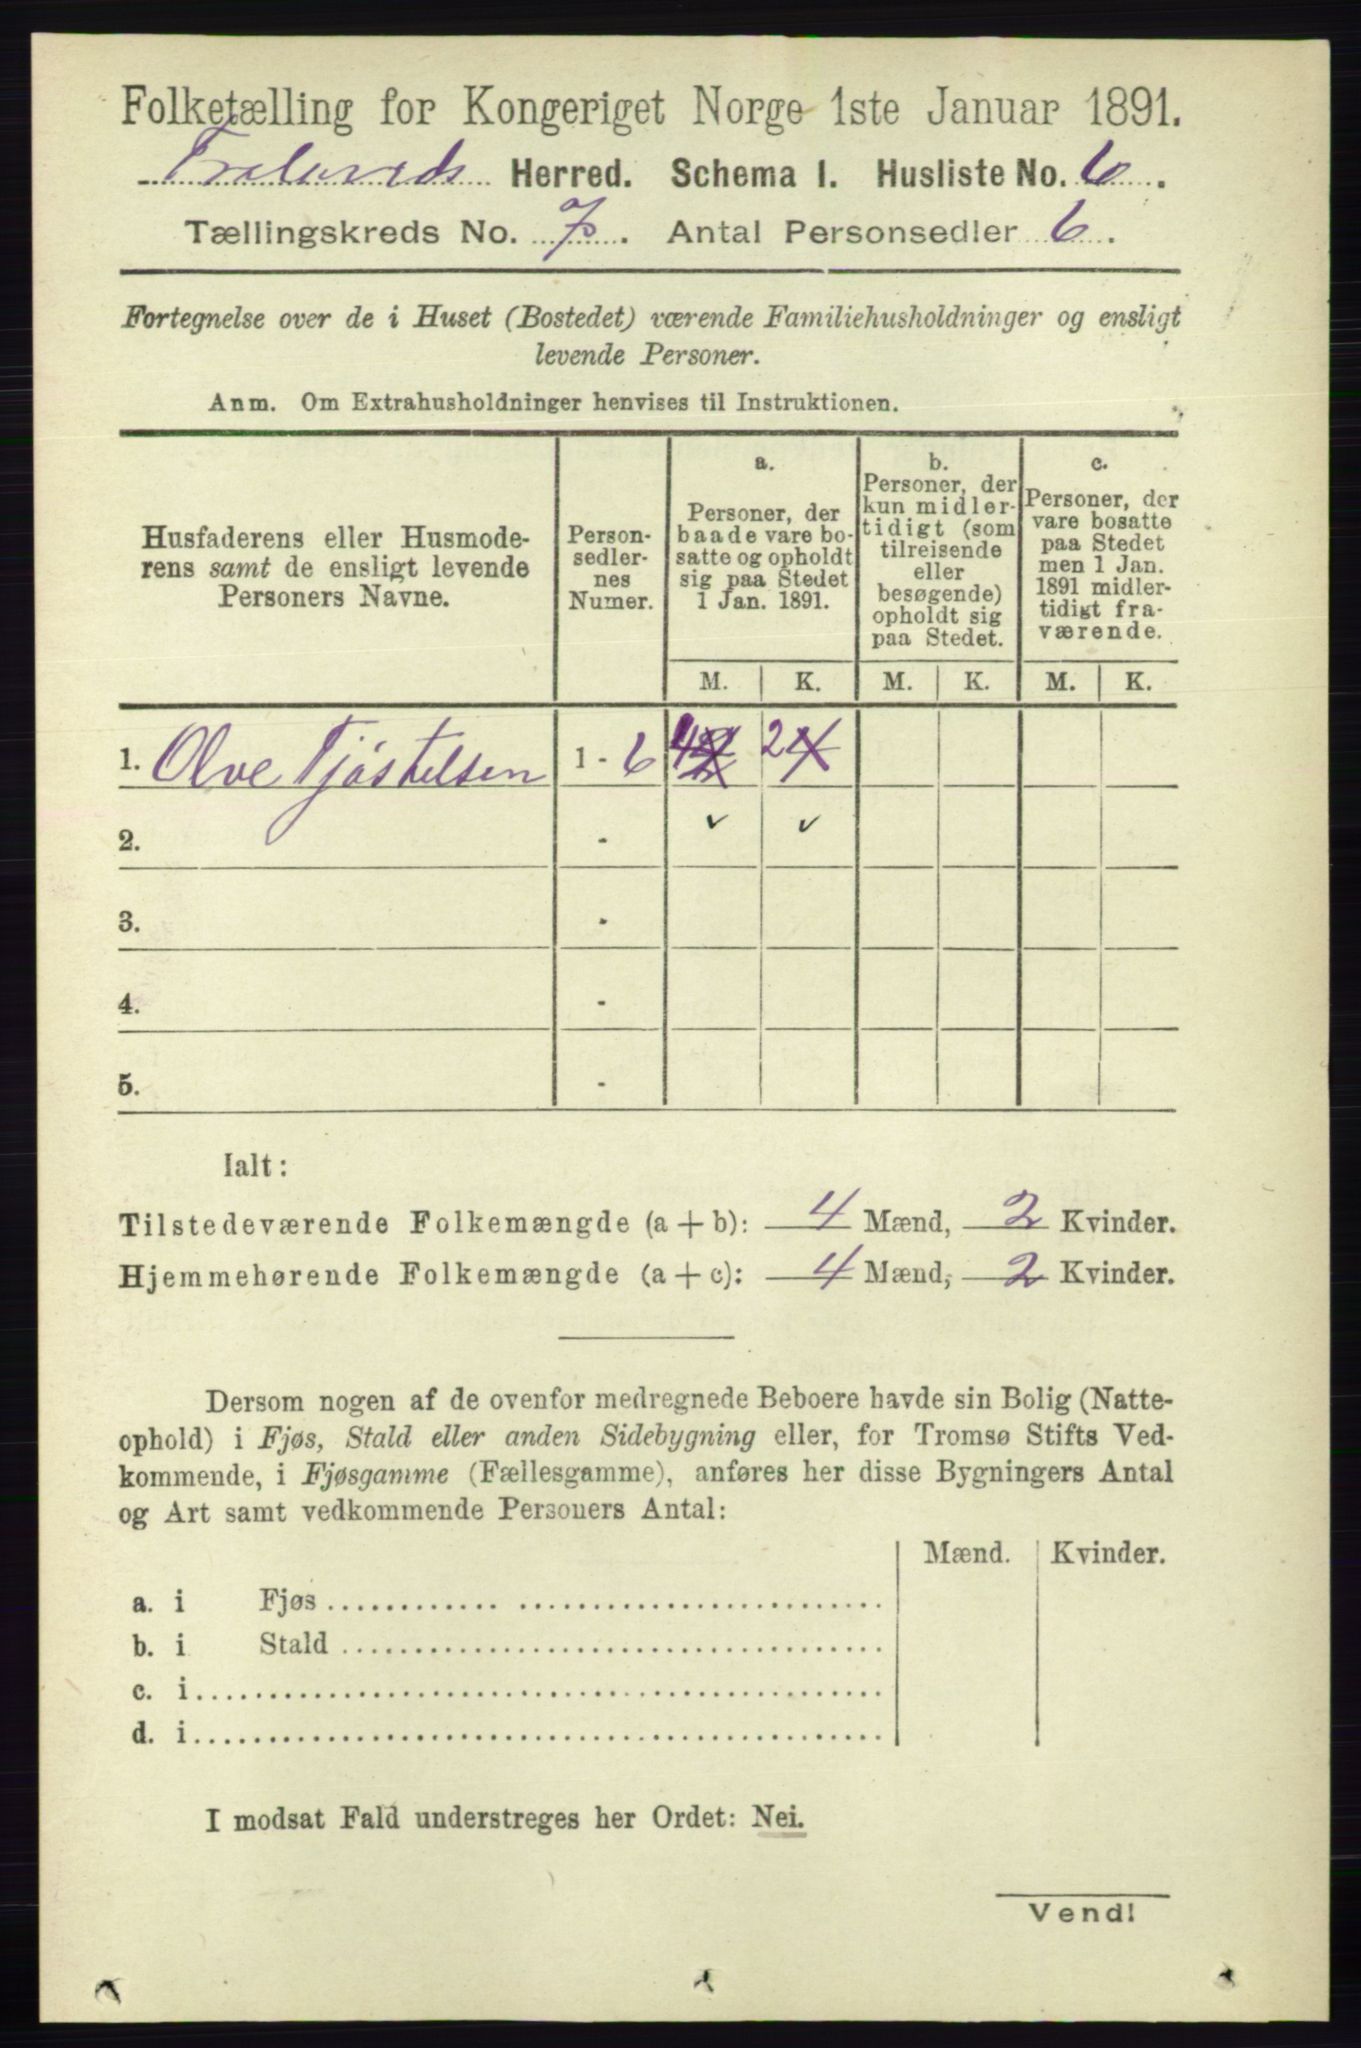 Folketælling for Kongeriget Norge 1ste Januar 1891.
Herred. Schema I. Husliste No. 6.
Tællingskreds No. 7. Antal Personsedler 6.
Fortegnelse over de i Huset (Bostedet) værende Familiehusholdninger og ensligt
levende Personer.
Anm. Om Extrahusholdninger henvises til Instruktionen.
Husfaderens eller Husmode-
rens samt de ensligt levende
Personers Navne.
Person-
sedler-
nes
Numer.
a.
Personer, der
baade vare bo-
satte og opholdt
sig paa Stedet
1 Jan. 1891.
b.
Personer, der
kun midler-
tidigt (som
tilreisende
eller
besøgende)
opholdt sig
paa Stedet.
c.
Personer, der
vare bosatte
paa Stedet
men 1 Jan.
1891 midler-
tidigt fra-
værende.
M. K. M. K. M. K.
1. Olve Tjøstelsen 1 - 6 4 2 2 4
2. - ✓ ✓
3. -
4. -
5. -
Ialt:
Tilstedeværende Folkemængde (a + b): 4 Mænd, 2 Kvinder.
Hjemmehørende Folkemængde (a + c): 4 Mænd, 2 Kvinder.
Dersom nogen af de ovenfor medregnede Beboere havde sin Bolig (Natte-
ophold) i Fjøs, Stald eller anden Sidebygning eller, for Tromsø Stifts Ved-
kommende, i Fjøsgamme (Fællesgamme), anføres her disse Bygningers Antal
og Art samt vedkommende Personers Antal:
Mænd. Kvinder.
a. i Fjøs
b. i Stald
c. i
d. i
I modsat Fald understreges her Ordet: Nei.
Vend!